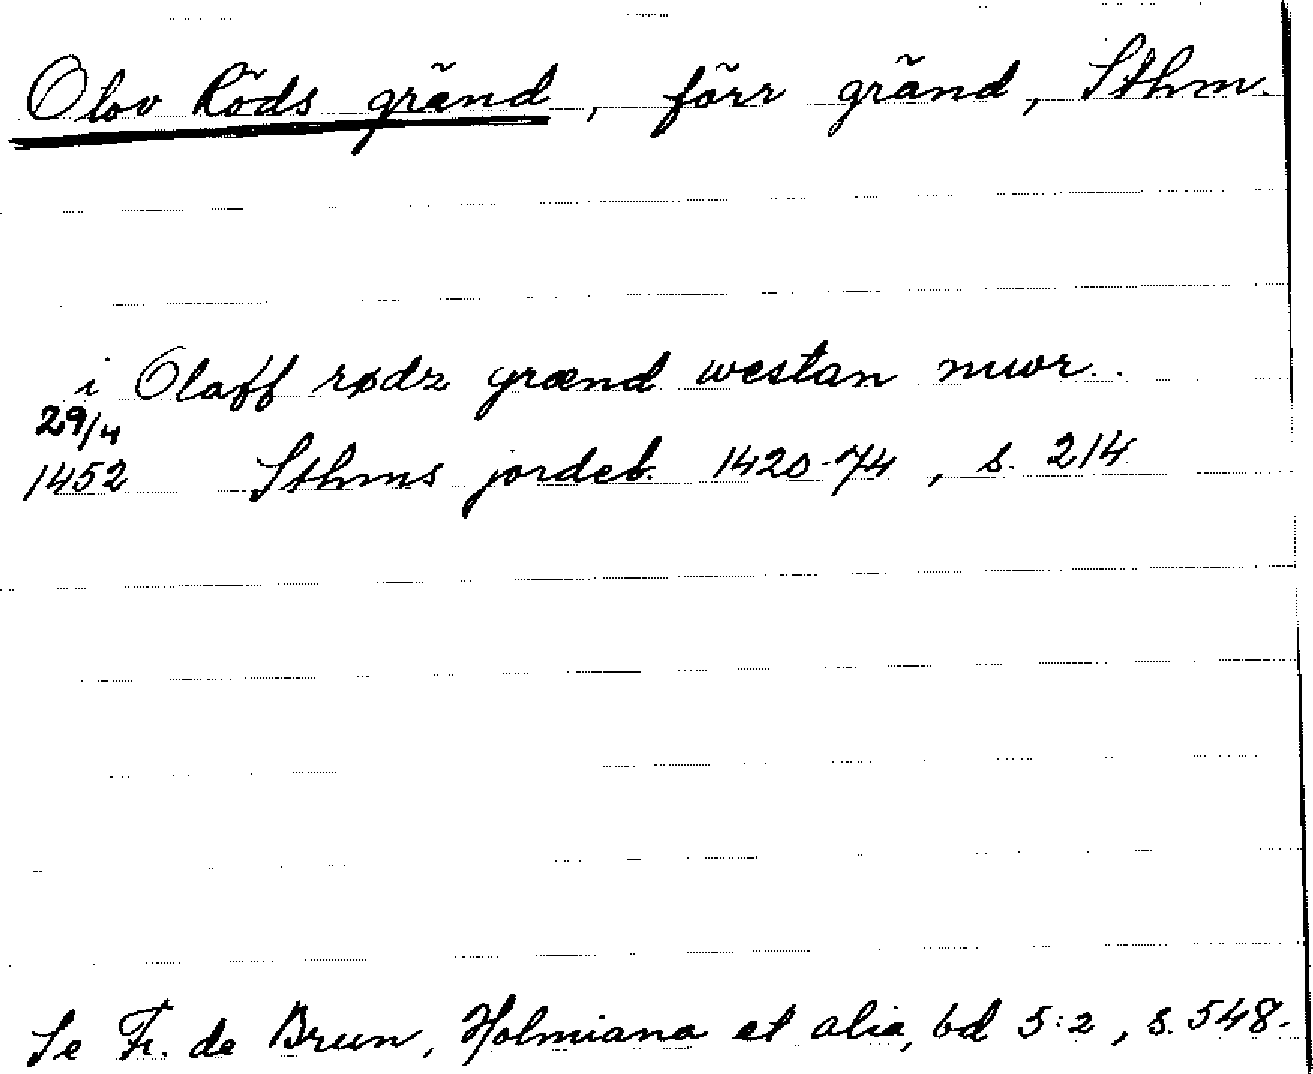 Olov Röds gränd, förr gränd, Sthm.
i Olaff rødz grænd westan mwr..
29/4
1452 Sthms jordeb. 1420-74, s. 214
Se Fr. de Brun, Holmiana et alia, bd 5:2, s. 548.